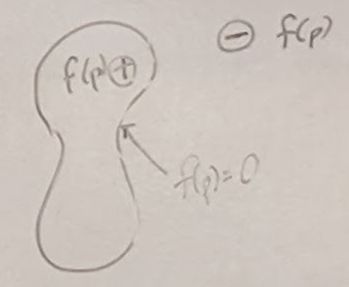 ⊖ f(p)
f(p)⊕
f(p)=0